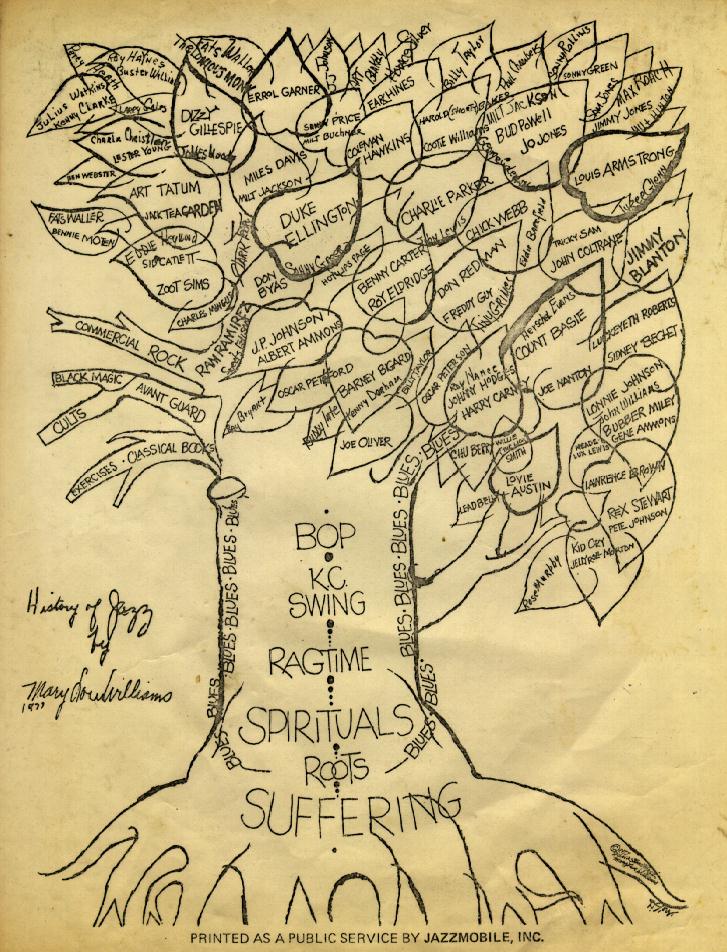 FATS WALLER
THELONIOUS MONK
ROY HAYNES
BUSTER WILLIAMS
JULIUS WATKINS
KENNY CLARKE
ERROL GARNER
JOHNSON
HORACE SILVER
EARL HINES
BILLY TAYLOR
PAUL CHAMBERS
SONNY ROLLINS
SONNY GREEN
SAM JONES
MAX ROACH
JIMMY JONES
DIZZY
GILLESPIE
JAMES MOODY
SAMMY PRICE
MILT BUCHNER
COLEMAN
HAWKINS
COOTIE WILLIAMS
MILT JACKSON
BUD POWELL
JO JONES
CHARLIE CHRISTIAN
LESTER YOUNG
BEN WEBSTER
ART TATUM
JACK TEAGARDEN
MILES DAVIS
MILT JACKSON
LOUIS ARMSTRONG
FATS WALLER
BENNIE MOTEN
DUKE
ELLINGTON
SONNY GREER
CHARLIE PARKER
CHICK WEBB
TRICKY SAM
JOHN COLTRANE
JIMMY
BLANTON
SID CATLETT
ZOOT SIMS
CHARLES MINGUS
CLARK TERRY
DON
BYAS
HOT LIPS PAGE
BENNY CARTER
ROY ELDRIDGE
DON REDMAN
FREDDY GUY
HERSCHEL EVANS
COUNT BASIE
LUCKEYETH ROBERTS
SIDNEY BECHET
COMMERCIAL ROCK
RAM RAMIREZ
J.P. JOHNSON
ALBERT AMMONS
OSCAR PETTIFORD
BARNEY BIGARD
KENNY DORHAM
BILLY TAYLOR
OSCAR PETERSON
RAY NANCE
JOHNNY HODGES
HARRY CARNEY
JOE NANTON
LONNIE JOHNSON
JOHN WILLIAMS
BUBBER MILEY
GENE AMMONS
BLACK MAGIC
AVANT GUARD
CULTS
RAY BRYANT
JOE OLIVER
CHU BERRY
WILLIE
THE LION
SMITH
LOVIE
AUSTIN
LEADBELLY
MEADE
LUX LEWIS
LAWRENCE BROWN
REX STEWART
PETE JOHNSON
KID ORY
JELLYROLL MORTON
ROSE MURPHY
EXERCISES · CLASSICAL BOOKS
BLUES · BLUES · BLUES · BLUES · BLUES
BLUES · BLUES · BLUES · BLUES · BLUES
BOP
K.C.
SWING
RAGTIME
SPIRITUALS
ROOTS
SUFFERING
History of Jazz
by
Mary Lou Williams
PRINTED AS A PUBLIC SERVICE BY JAZZMOBILE, INC.